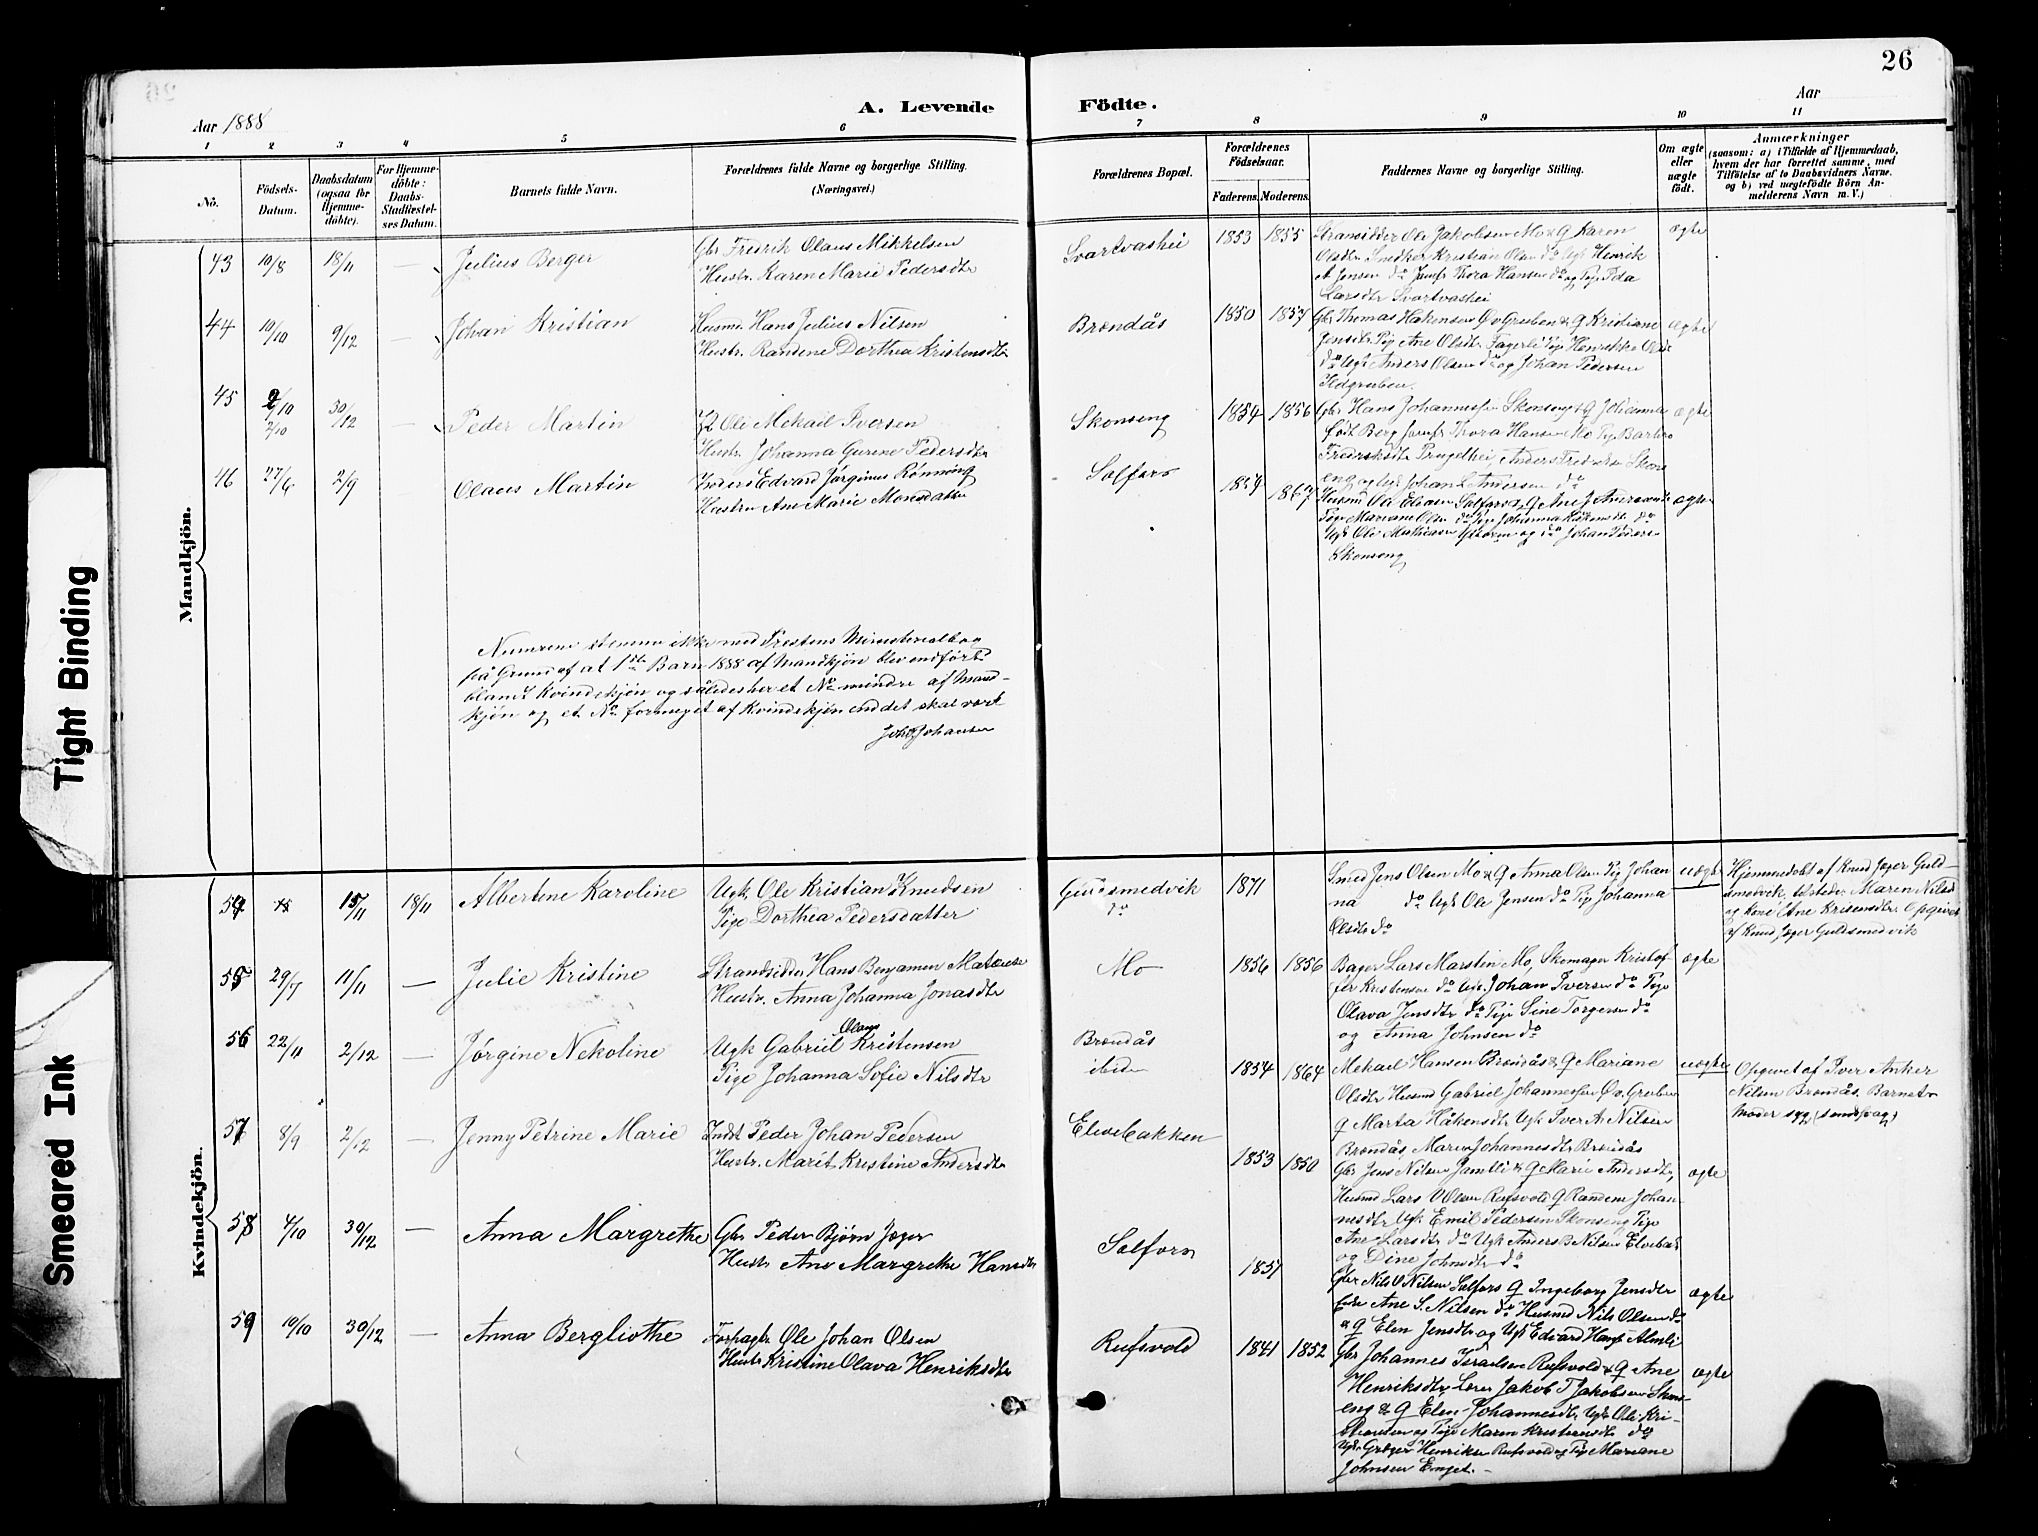 26
A. Levende Födte.
Aar 1888
Aar
1 2 3 4 5 6 7 8 9 10 11
No.
Födsels-Datum.
Daabsdatum (ogsaa for Hjemme-döbte).
For Hjemme-döbte: Daabs-Stadfæstel-ses Datum.
Barnets fulde Navn.
Forældrenes fulde Navne og borgerlige Stilling. (Næringsvei.)
Forældrenes Bopæl.
Forældrenes Födselsaar.
Faderens. Moderens.
Faddernes Navne og borgerlige Stilling.
Om ægte eller uægte födt.
Anmærkninger
(saasom: a) i Tilfælde af Hjemmedaab,
hvem der har forrettet samme, med
Tilföielse af to Daabsvidners Navne.
og b) ved uægtefödte Börn An-
melderens Navn m. V.)
Mandkjön.
43 10/8 18/11 — Julius Berger
Gbr Fredrik Olaus Mikkelsen
Hustr. Karen Marie Pedersdtr
Svartvashei 1853 1855
Strandsidder Ole Jakobsen Mo & Q Karen
Olsdtr Snedker Kristian Olsen do Ugk Henrik
A Jensen do Jomfr Thora Hansen do og Pige Ida
Larsdtr Svartvashei
ægte
44 10/10 9/12 — Johan Kristian
Husmd. Hans Julius Nilsen
Hustr. Randine Dorthea Kristensdtr
Brendås 1850 1857
Gbr Thomas Håkensen Øv Gruben & Q Kristiane
Jensdtr Pige Ane Olsdtr Fagerli Pige Henrikke Olsdtr
do Ugk Anders Olsen do og Johan Pedersen
Ildgruben.
ægte
45 2/10 2/10 30/12 — Peder Martin
Ole Mekail Iversen
Hustr. Johanna Gurine Pedersdtr
Skonseng 1854 1856
Gbr Hans Johannessen Skonseng & Q Johanna
født Berg Jomfr Thora Hansen Mo Pig Barbro
Fredriksdtr Prugelhei, Anders Fredriksen Skons
eng og Ugk Johan L Andersen do
ægte
46 27/6 2/9 Olaus Martin
Inders Edvard Jørginus Rønning
Hustru Ane Marie Monsdatter
Solfors 1859 1867
Husmd Ole Eliasen Solfors & Q Ane J Andersdtr
Pige Mariane Olsen do Pige Johanna do
Ugk Ole Mathiesen Ytteren og do Johan Peders
Skonseng
ægte
Numrene stemme ikke med Prestens Ministerialbog
på Grund af at 1ste Barn 1888 af Mandkjøn blev indført
blandt Kvindekjøn og således her et No mindre af Mand-
kjøn og et No formeget af Kvindekjøn end det skal vært
Johs Johansen
Kvindekjön.
54 15/11 18/11 Albertine Karoline
Ugk. Ole Kristian Knudsen
Pige Dorthea Pedersdatter
Guldsmedvik
do
1871
Smed Jens Olsen Mo & Q Anna Olsen Pig Johan
na do Ugk Ole Jensen do Pig Johanna
Olsdtr do
uægte
Hjemmedøbt af Knud Jæger Guld-
smedvik, tilstede Maren Nilsd
og kone Ane Kristensdtr. Opgivet
af Knud Jæger Guldsmedvik
55 29/7 11/11 — Julie Kristine
Strandsidder Hans Benjamin
Hustr. Anna Johanna Jonasdtr
Mo 1856 1856
Bager Lars Marstin Mo, Skomager Kristof
fer Kristensen do Ugk. Johan Iversen do Pige
Olava Jensdtr do Pige Sine Torgersen do
og Anna Johnsen do
ægte
56 22/11 2/12 — Jørgine Nekoline
Olaus
Ugk Gabriel Kristensen
Pige Johanna Sofie Nilsdtr
Brendås
ibiden
1854 1864
Mekael Hansen Brendås & Q Mariane
Olsdtr Husmd Gabriel Johannessen Øv. Gruben
Q Marta Håkensdtr Ugk Iver A Nilsen
Brendås, Maren Johannesdtr Brendås
uægte
Opgivet af Iver Anker
Nilsen Brendås. Barnets
Moder syg (sindssvag)
57 8/9 2/12 — Jenny Petrine Marie
Indst Peder Johan Pedersen
Hustr. Marit Kristine Andersdtr
Elvebakken 1853 1850
Gbr Jens Nilsen Jamtli & Q Marie Andersdtr,
Husmd Lars O Olsen Rufsvold Q Randine Johan-
nesdtr Ugk Emil Pedersen Skonseng Pige
Ane Larsdtr do Ugk Anders B Nilsen Elvebak
og Dine Johnsdtr do
ægte
58 4/10 30/12 — Anna Margrethe
Gbr Peder Bjørn Jæger
Hustr Ane Margrethe Hansdtr
Solfors 1857
Gbr Nils O Nilsen Solfors Q Ingeborg Jensdtr
Enke Ane S. Nilsen do Husmd Nils Olsen do
& Q Elen Jensdtr og Ugk Edvard Hans Almli
ægte
59 10/10 30/12 — Anna Bergliothe
Forpagtr Ole Johan Olsen
Hustr Kristine Olava Henriksdtr
Rufsvold 1841 1852
Gbr Johannes Israelsen Rufsvold & Q Ane
Henriksdtr Lærer Jakob T Jakobsen Skons-
eng & Q Elen Johannesdtr Ugk Ole Kri-
stiansen og Pige Maren Kristensdtr do
Ugk. Gregor Henriksen Rufsvold og Pige Mariane
Johnsen Enget. –
ægte
Tight Binding
Smeared Ink